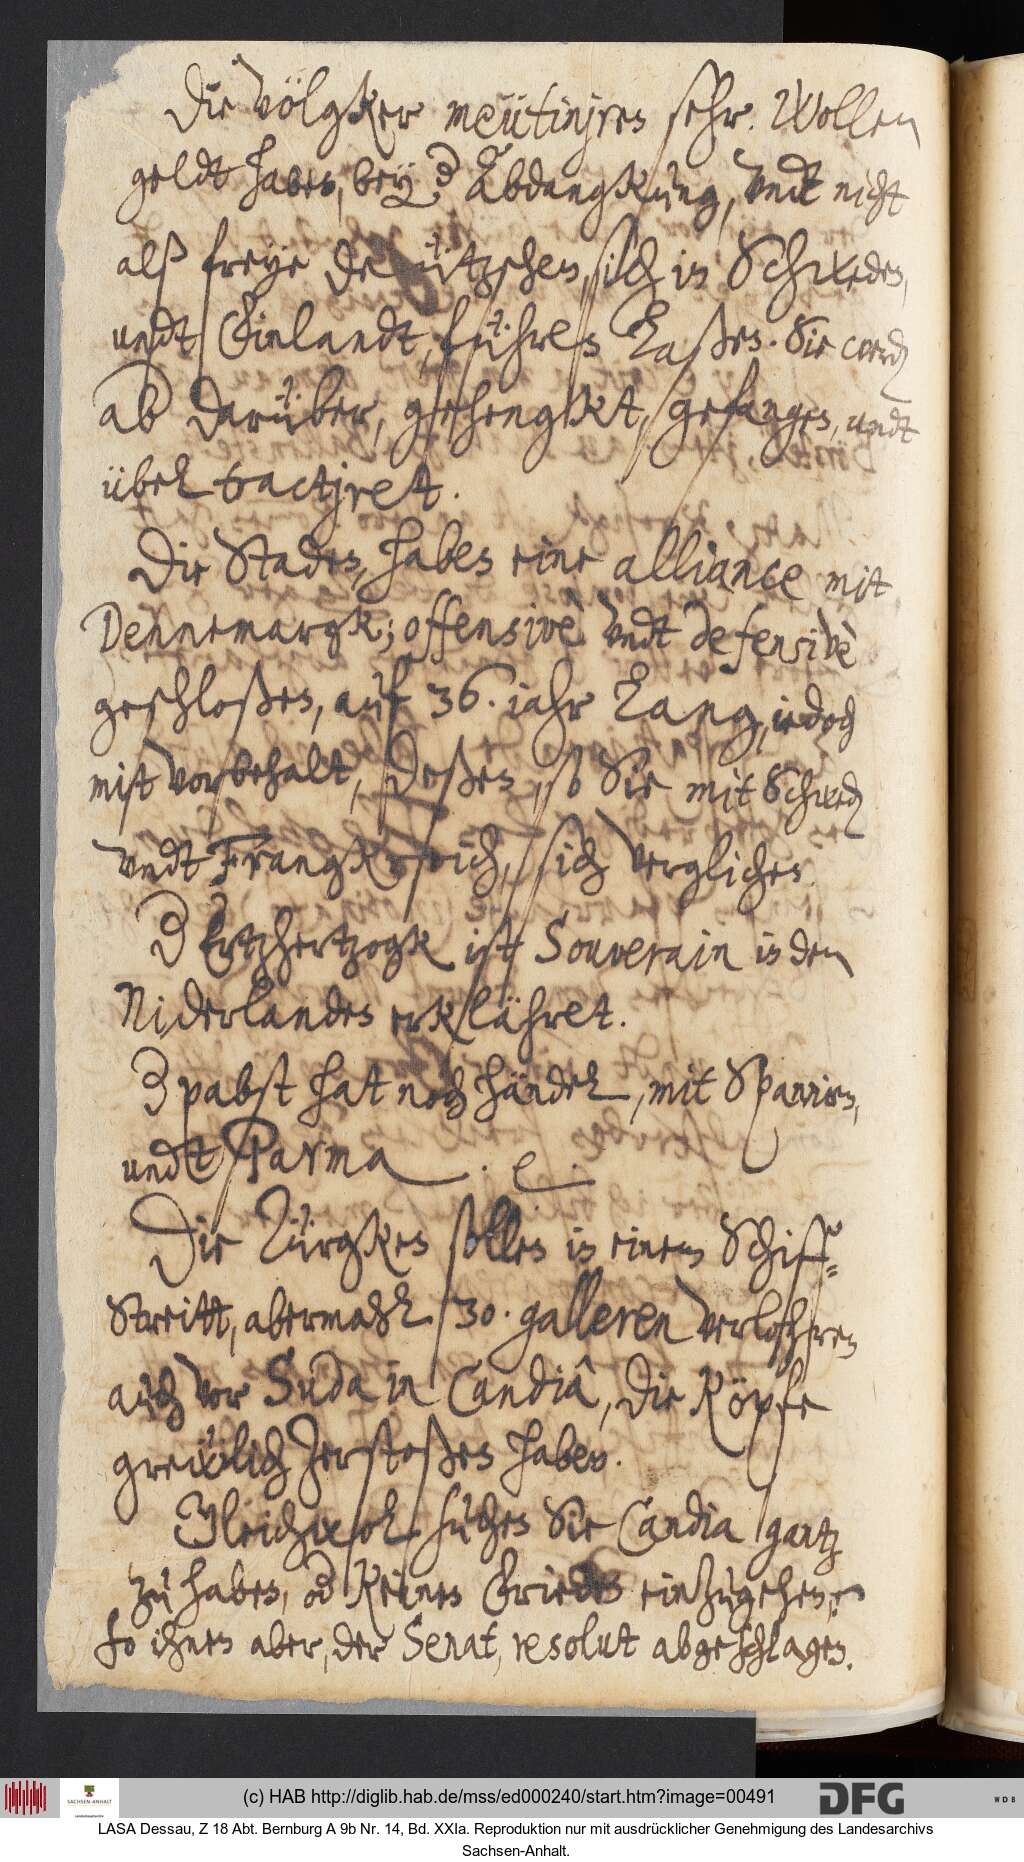 Die Völgker meütiniren sehr. Wollen
geldt haben, bey der Abdangkung, vndt nicht
alß freye deützschen, sich in Schweden,
undt Finlandt, führen laßen. Sie werden
ab darüber, gehengkt, gefangen, undt
übel tractiret.
Die Staden, haben eine alliance mit
Dennemargk; offensivè vndt defensivè
geschloßen, auf 36. iahr lang, iedoch
mitt vorbehalt, deßen, so Sie mit Schweden
vndt Frangkreich, sich verglichen.
Der Ertzhertzogk ist Souverain in den
Niderlanden erklähret.
Der pabst hat noch händel, mit Spannien,
undt Parma ___. e .
Die Türgken sollen in einem Schiff-
Streitt, abermahl 30. galleren verlohren
auch vor Suda in Candiâ, die Köpfe
grewlich zerstoßen haben.
Gleichwol suchen Sie Candia gantz
zu haben, oder keinen Frieden einzugehen,
so ihnen aber, der Senat, resolut abgeschlagen.
(c) HAB http://diglib.hab.de/mss/ed000240/start.htm?image=00491
SACHSEN-ANHALT
DFG
WDB
LASA Dessau, Z 18 Abt. Bernburg A 9b Nr. 14, Bd. XXIa. Reproduktion nur mit ausdrücklicher Genehmigung des Landesarchivs
Sachsen-Anhalt.